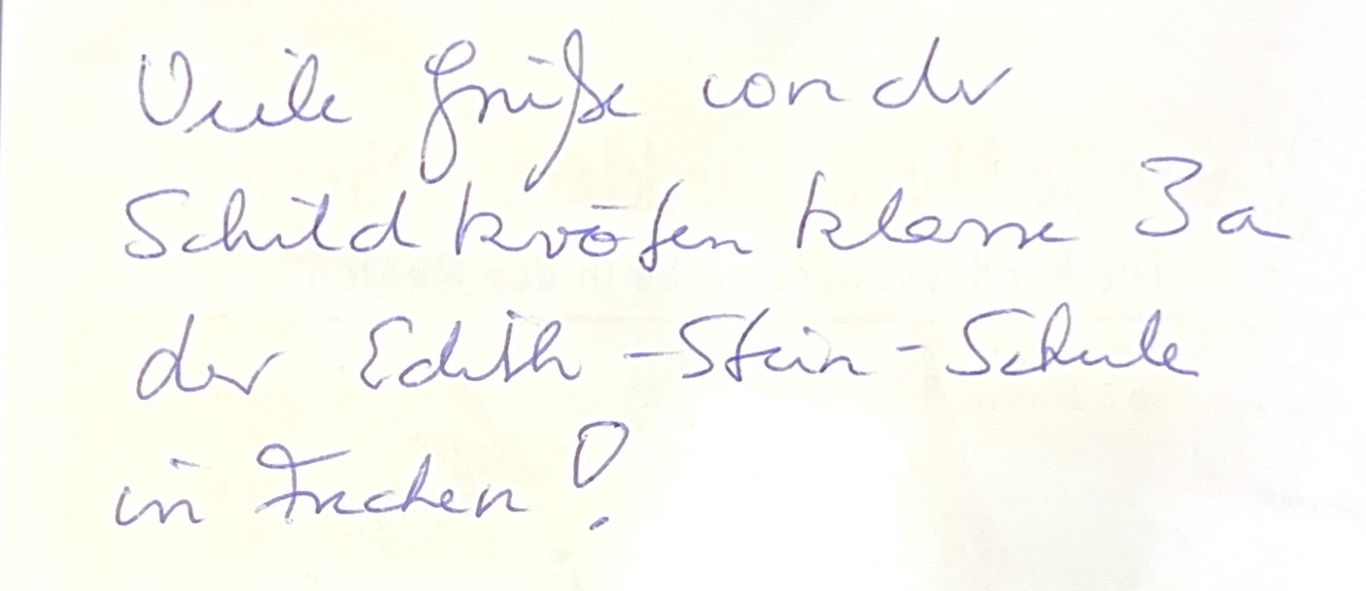 Viele Grüße von der
Schildkrötenklasse 3a
der Edith-Stein-Schule
in Frechen!